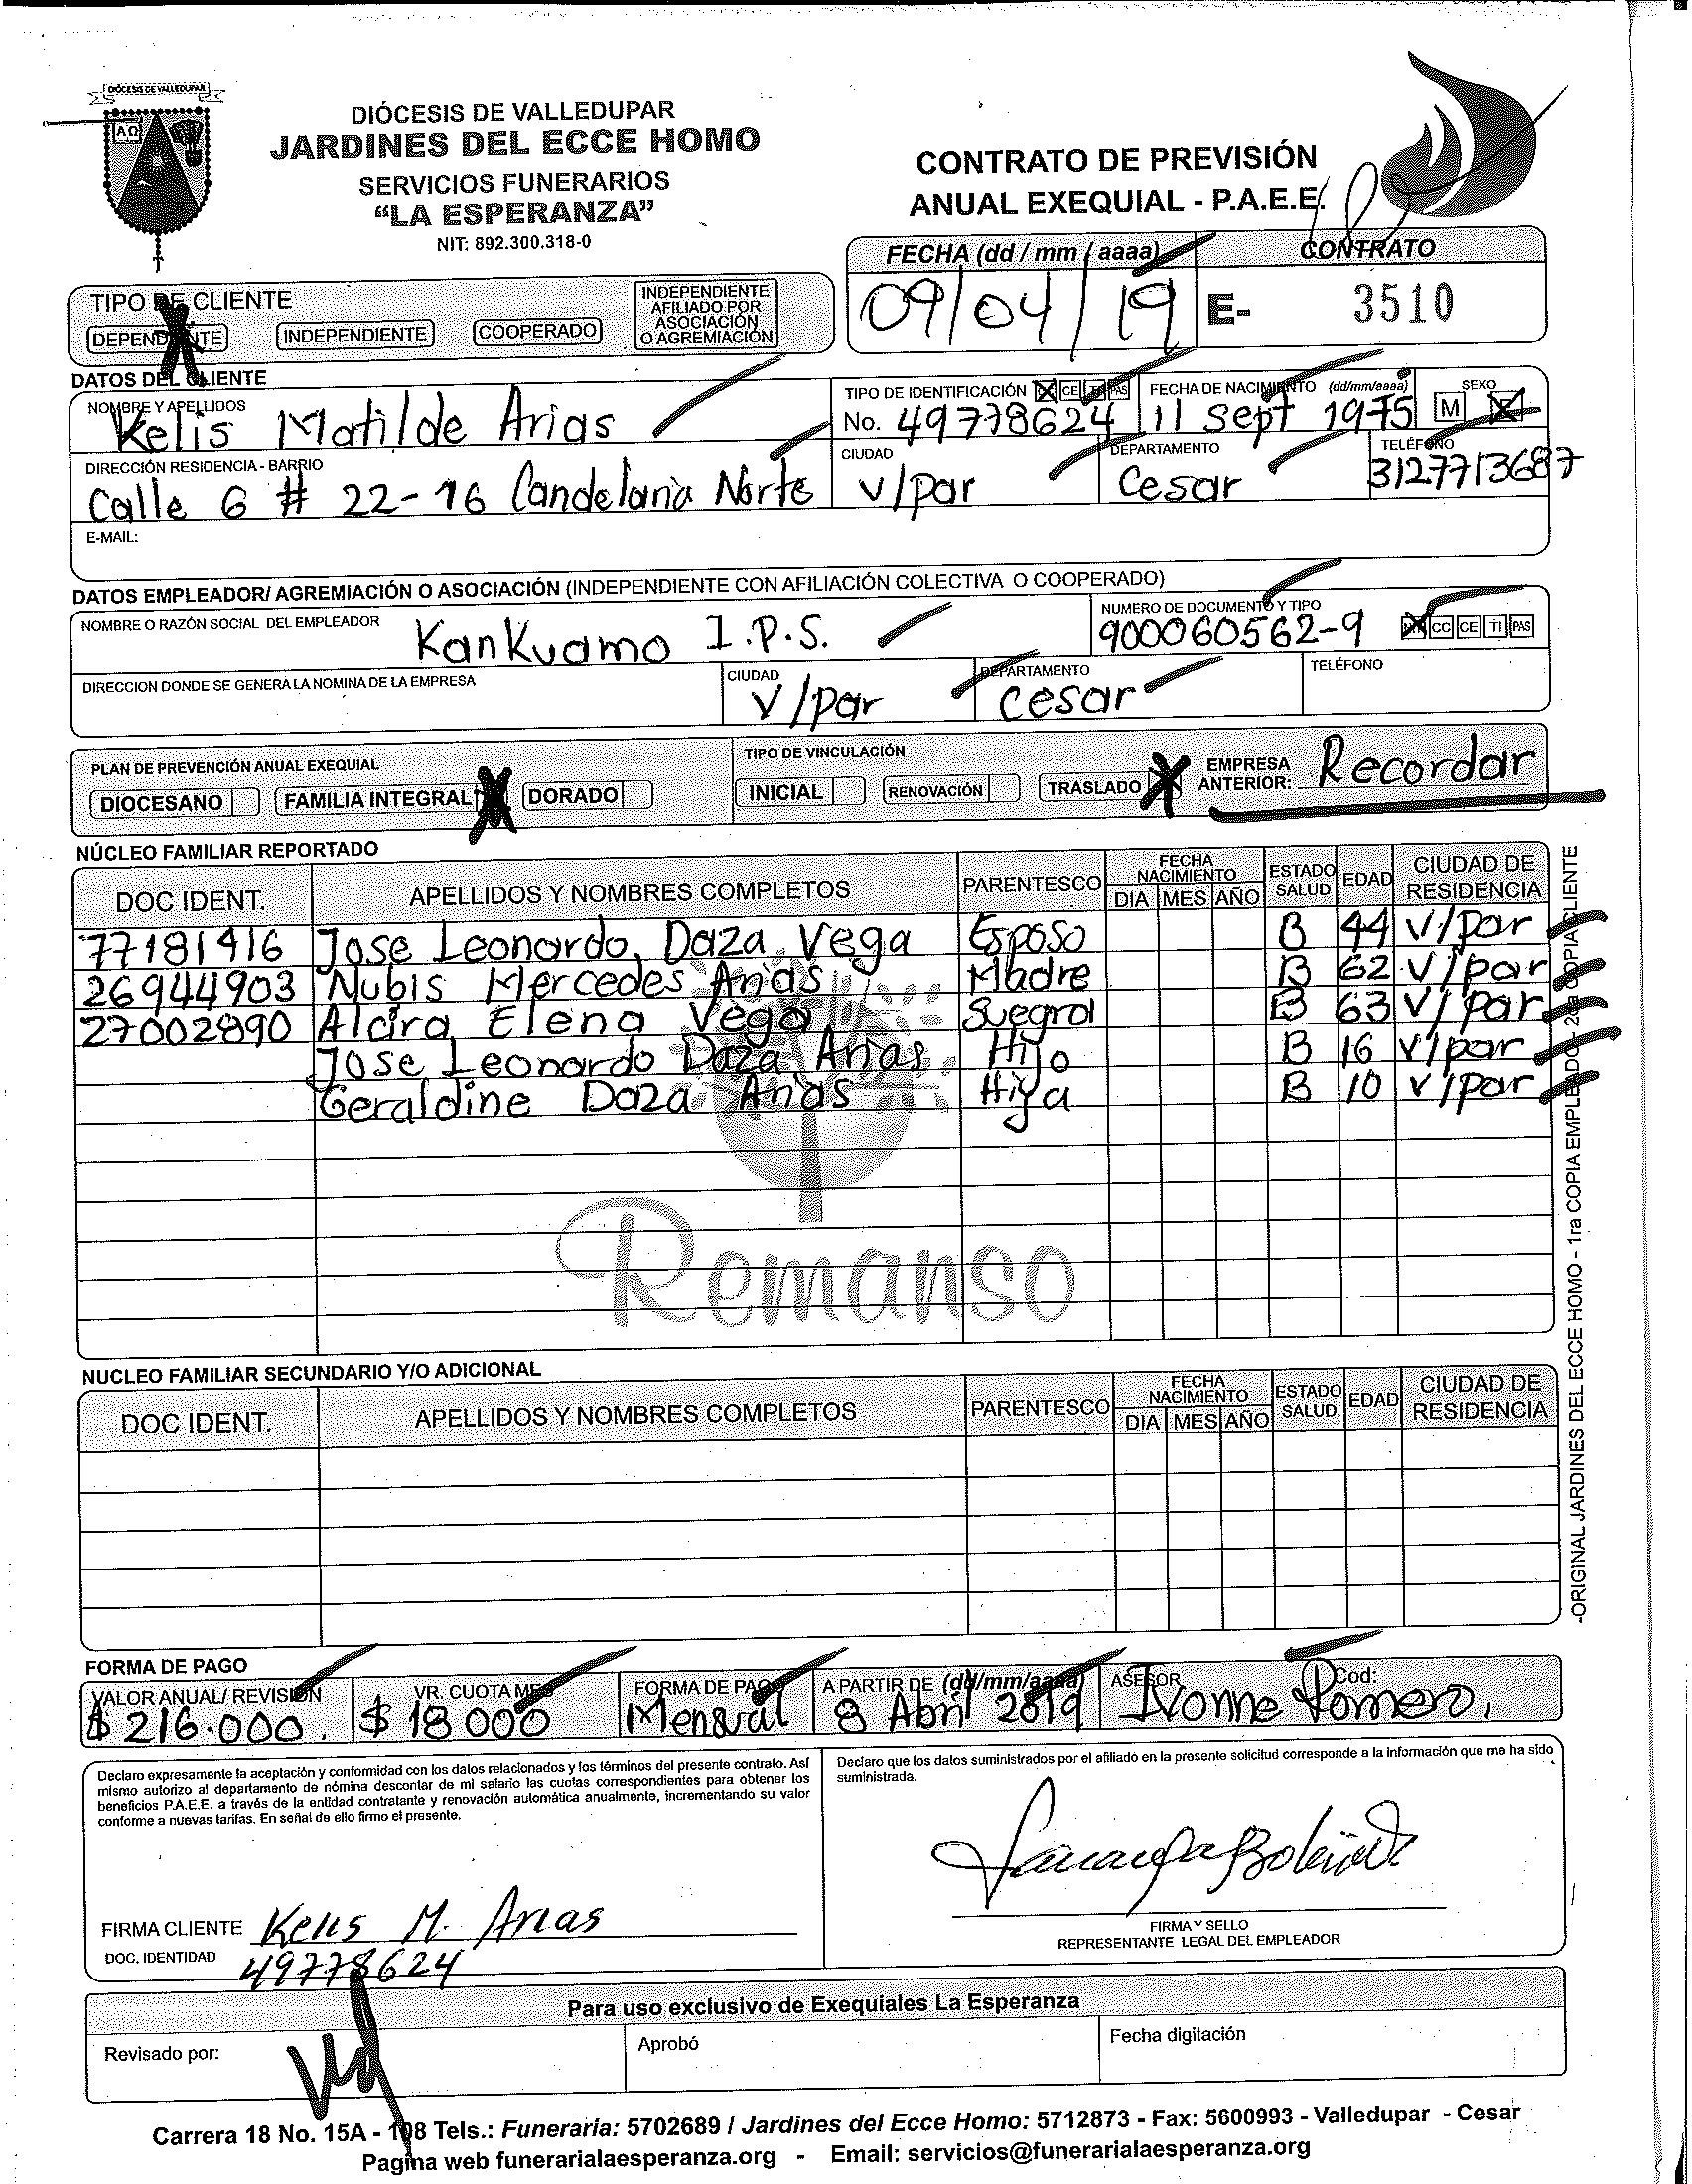 DIÓCESIS DE VALLEDUPAR
DIÓCESIS DE VALLEDUPAR
JARDINES DEL ECCE HOMO
SERVICIOS FUNERARIOS
“LA ESPERANZA”
NIT: 892.300.318-0
CONTRATO DE PREVISIÓN
ANUAL EXEQUIAL - P.A.E.E.
FECHA (dd / mm / aaaa) CONTRATO
09/04/19 E- 3510
TIPO DE CLIENTE
DEPENDIENTE INDEPENDIENTE COOPERADO INDEPENDIENTE AFILIADO POR ASOCIACIÓN O AGREMIACIÓN
DATOS DEL CLIENTE
NOMBRE Y APELLIDOS TIPO DE IDENTIFICACIÓN CC CE TI PAS FECHA DE NACIMIENTO (dd/mm/aaaa) SEXO
Kelis Matilde Arias No. 49778624 11 Sept 1975 M F
DIRECCIÓN RESIDENCIA - BARRIO CIUDAD DEPARTAMENTO TELÉFONO
Calle 6 # 22-16 Candelaria Norte V/par Cesar 3127713687
E-MAIL:
DATOS EMPLEADOR/ AGREMIACIÓN O ASOCIACIÓN (INDEPENDIENTE CON AFILIACIÓN COLECTIVA O COOPERADO)
NOMBRE O RAZÓN SOCIAL DEL EMPLEADOR NUMERO DE DOCUMENTO Y TIPO
Kankuamo I.P.S. 900060562-9 NIT CC CE TI PAS
DIRECCION DONDE SE GENERA LA NOMINA DE LA EMPRESA CIUDAD DEPARTAMENTO TELÉFONO
V/par Cesar
PLAN DE PREVENCIÓN ANUAL EXEQUIAL TIPO DE VINCULACIÓN
DIOCESANO FAMILIA INTEGRAL DORADO INICIAL RENOVACIÓN TRASLADO EMPRESA ANTERIOR: Recordar
NÚCLEO FAMILIAR REPORTADO
DOC IDENT. APELLIDOS Y NOMBRES COMPLETOS PARENTESCO FECHA NACIMIENTO DIA MES AÑO ESTADO SALUD EDAD CIUDAD DE RESIDENCIA
77181416 Jose Leonardo Daza Vega Esposo B 44 V/par
26944903 Nubis Mercedes Arias Madre B 62 V/par
27002890 Alcira Elena Vega Suegra B 63 V/par
Jose Leonardo Daza Arias Hijo B 16 V/par
Geraldine Daza Arias Hija B 10 V/par
Remanso
NUCLEO FAMILIAR SECUNDARIO Y/O ADICIONAL
DOC IDENT. APELLIDOS Y NOMBRES COMPLETOS PARENTESCO FECHA NACIMIENTO DIA MES AÑO ESTADO SALUD EDAD CIUDAD DE RESIDENCIA
-ORIGINAL JARDINES DEL ECCE HOMO - 1ra COPIA EMPLEADO - 2da COPIA CLIENTE
FORMA DE PAGO
VALOR ANUAL/ REVISIÓN VR. CUOTA MES FORMA DE PAGO A PARTIR DE (dd/mm/aaaa) ASESOR Cod:
$ 216.000. $ 18 000 Mensual 8 Abril 2019 Ivonne Romero.
Declaro expresamente la aceptación y conformidad con los datos relacionados y los términos del presente contrato. Así
mismo autorizo al departamento de nómina descontar de mi salario las cuotas correspondientes para obtener los
beneficios P.A.E.E. a través de la entidad contratante y renovación automática anualmente, incrementando su valor
conforme a nuevas tarifas. En señal de ello firmo el presente.
Declaro que los datos suministrados por el afiliado en la presente solicitud corresponde a la información que me ha sido
suministrada.
FIRMA CLIENTE Kelis M. Arias
DOC. IDENTIDAD 49778624
FIRMA Y SELLO
REPRESENTANTE LEGAL DEL EMPLEADOR
Para uso exclusivo de Exequiales La Esperanza
Revisado por: Aprobó Fecha digitación
Carrera 18 No. 15A - 108 Tels.: Funeraria: 5702689 / Jardines del Ecce Homo: 5712873 - Fax: 5600993 - Valledupar - Cesar
Pagina web funerarialaesperanza.org - Email: servicios@funerarialaesperanza.org